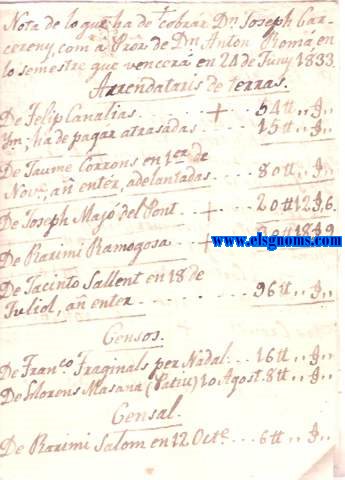 Nota de lo que ha de cobrar Dn. Joseph Car-
cereny, com á Pror. de Dn. Anton Romá, en
lo semestre que vencerá en 24 de Juny 1833
Arrendataris de terras.
De Felip Canalias . . . + . . 54 ₶ ,, ꝭ ,,
Ym; ha de pagar atrasadas . . . 15 ₶ ,, ꝭ ,,
De Jaume Corrons en 1er. de
Nove. añ entér, adelantadas . . . 80 ₶ ,, ꝭ ,,
De Joseph Majó del Pont . + . . 20 ₶ 12 ꝭ 6.
De Maximi Ramogosa . . +
www.elsgnoms.com
De Jacinto Sallent en 18 de
Juliol, añ enter . . . 96 ₶ ,, ꝭ ,,
Censos.
De Franco. Fraginals per Nadal . . . 16 ₶ ,, ꝭ ,,
De Llorens Masana (Patiu) 10 Agost. 8 ₶ ,, ꝭ ,,
Censal.
De Maximi Salom en 12 Octe. . . 6 ₶ ,, ꝭ ,,